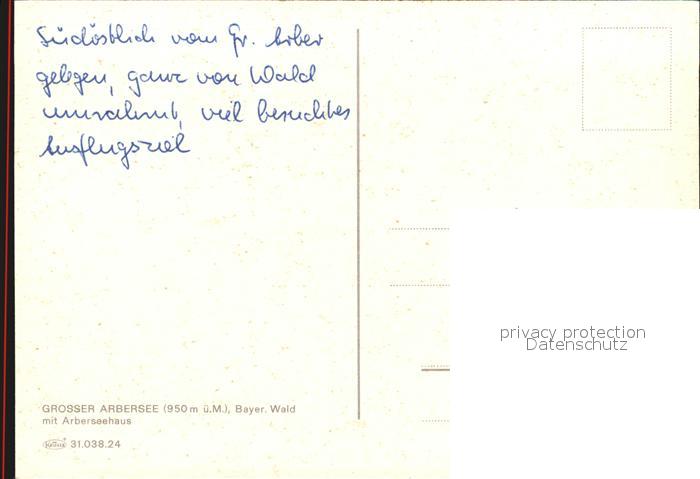 Südöstlich vom Gr. Arber
gelegen, ganz von Wald
umrahmt, viel besuchtes
Ausflugsziel
GROSSER ARBERSEE (950 m ü.M.), Bayer. Wald
mit Arberseehaus
31.038.24
privacy protection
Datenschutz